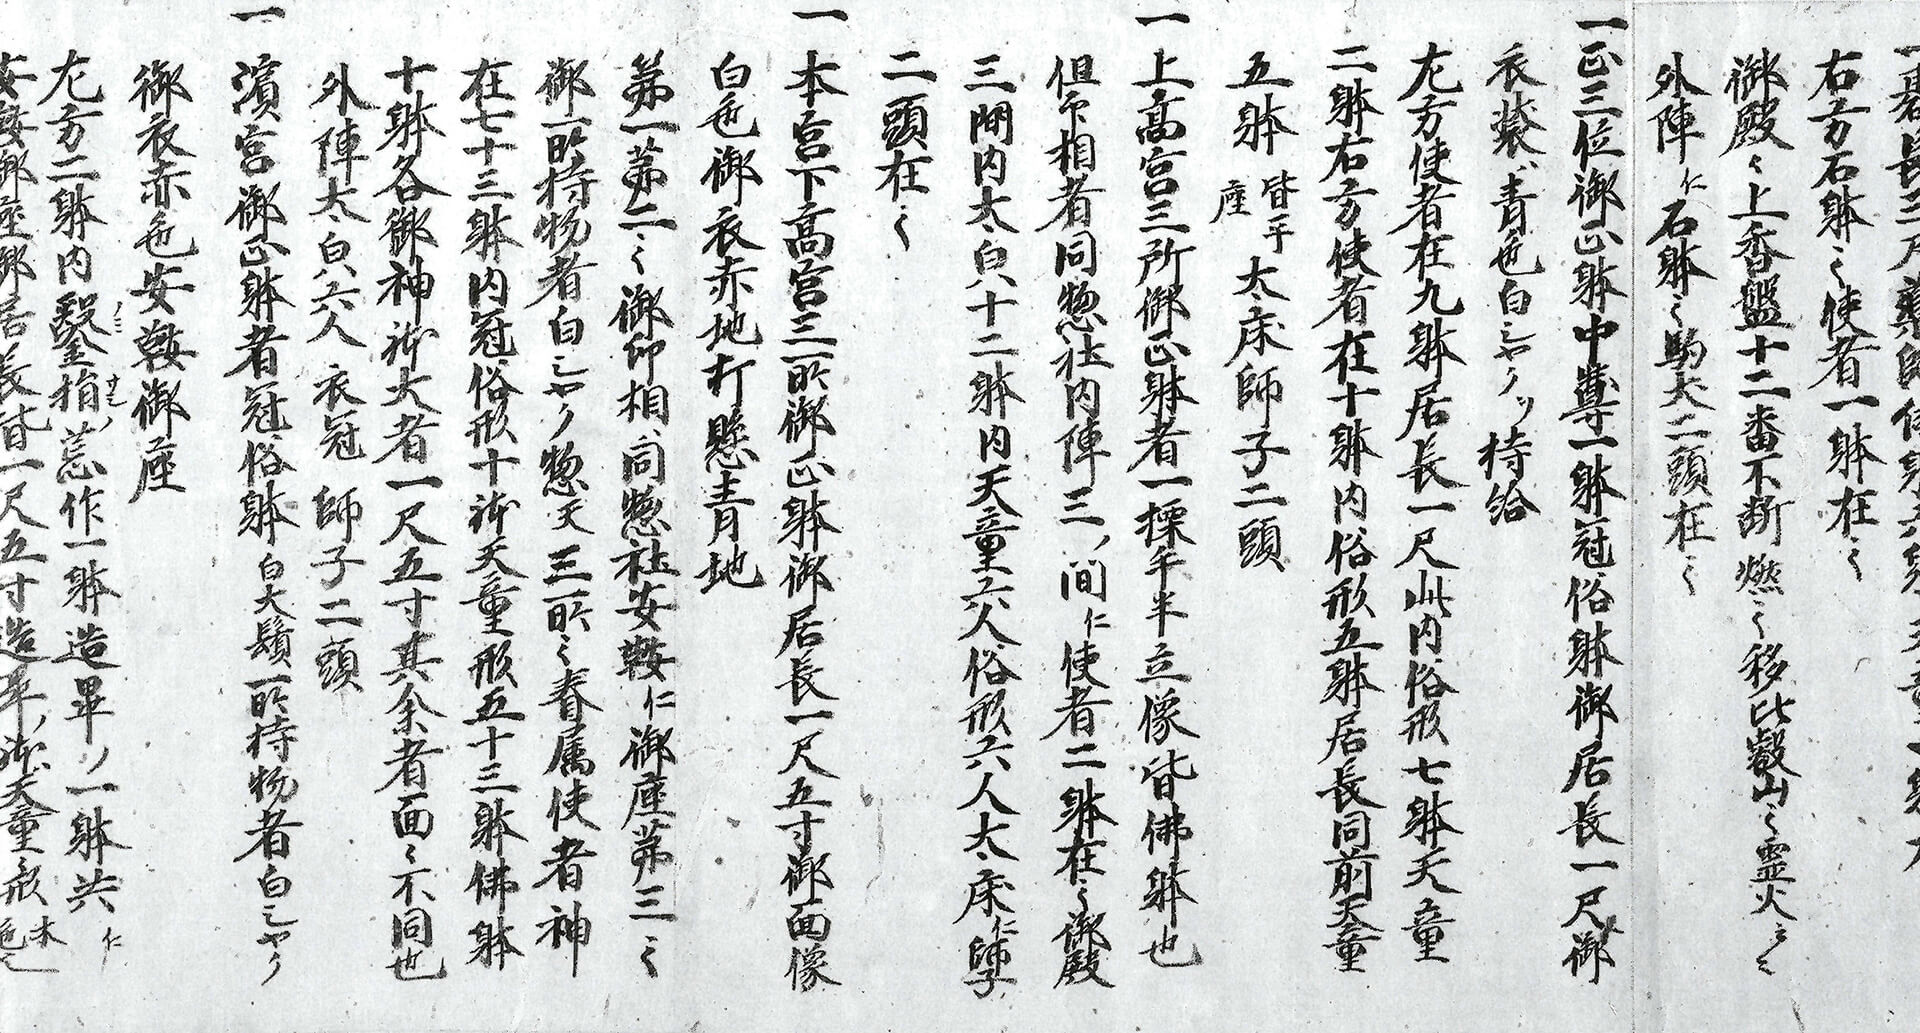 右方石躰ミ使者一躰在ミ
御殿ミ上香盤十二番不断燃ミ移比叡山ミ霊火ミミ
外陣ニ仁石躰ミ駒犬二頭在ミ
一正三位御正躰中尊一躰冠俗躰御居長一尺御
衣装青色白シヤクヲ持給
左方使者在九躰居長一尺此内俗形七躰天童
二躰右方使者在十躰内俗形五躰居長同前天童
五躰 皆半座 大床師子二頭
一上高宮三所御正躰者一揉手半立像皆佛躰也
但印相者同惣社内陣三ノ間仁使者二躰在ミ御殿
三間内大白八十二躰内天童六人俗形六人大床仁師子
二頭在ミ
一本宮下高宮三所御正躰御居長一尺五寸御面像
白色御衣赤地打懸青地
第一第二ミ御印相同惣社安鞍仁御座第三ミ
御所持物者白シヤク惣天三所ミ眷属使者神
在七十三躰内冠俗形十許天童形五十三躰佛躰
十躰各御神許大者一尺五寸其余者面ミ不同也
外陣大白八六人衣冠 師子二頭
一濱宮御正躰者冠俗躰白大鬚所持物者白シヤク
御衣赤色安鞍御座
左方二躰内鑿指荒作一躰造畢ノ一躰共仁